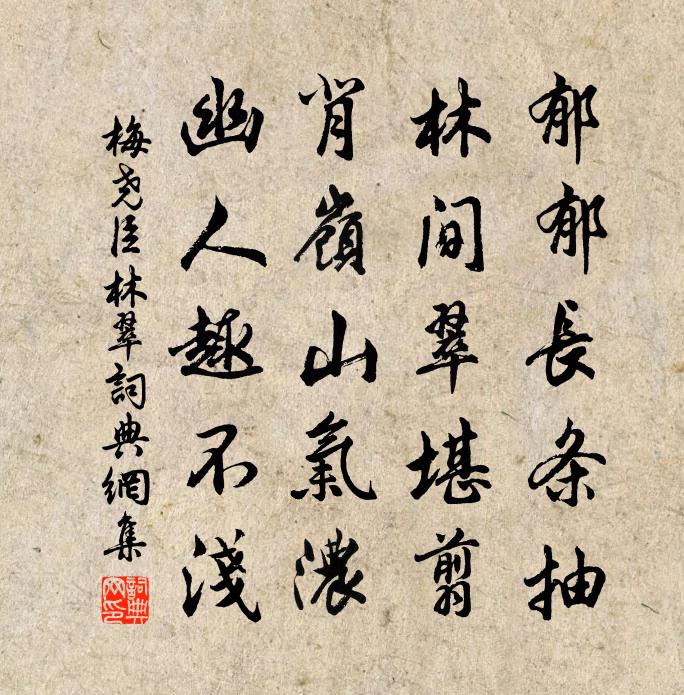 郁郁長条抽
林間翠堪翦
背嶺山氣濃
幽人趣不淺
梅尧臣林翠詞典網集
詞典網印